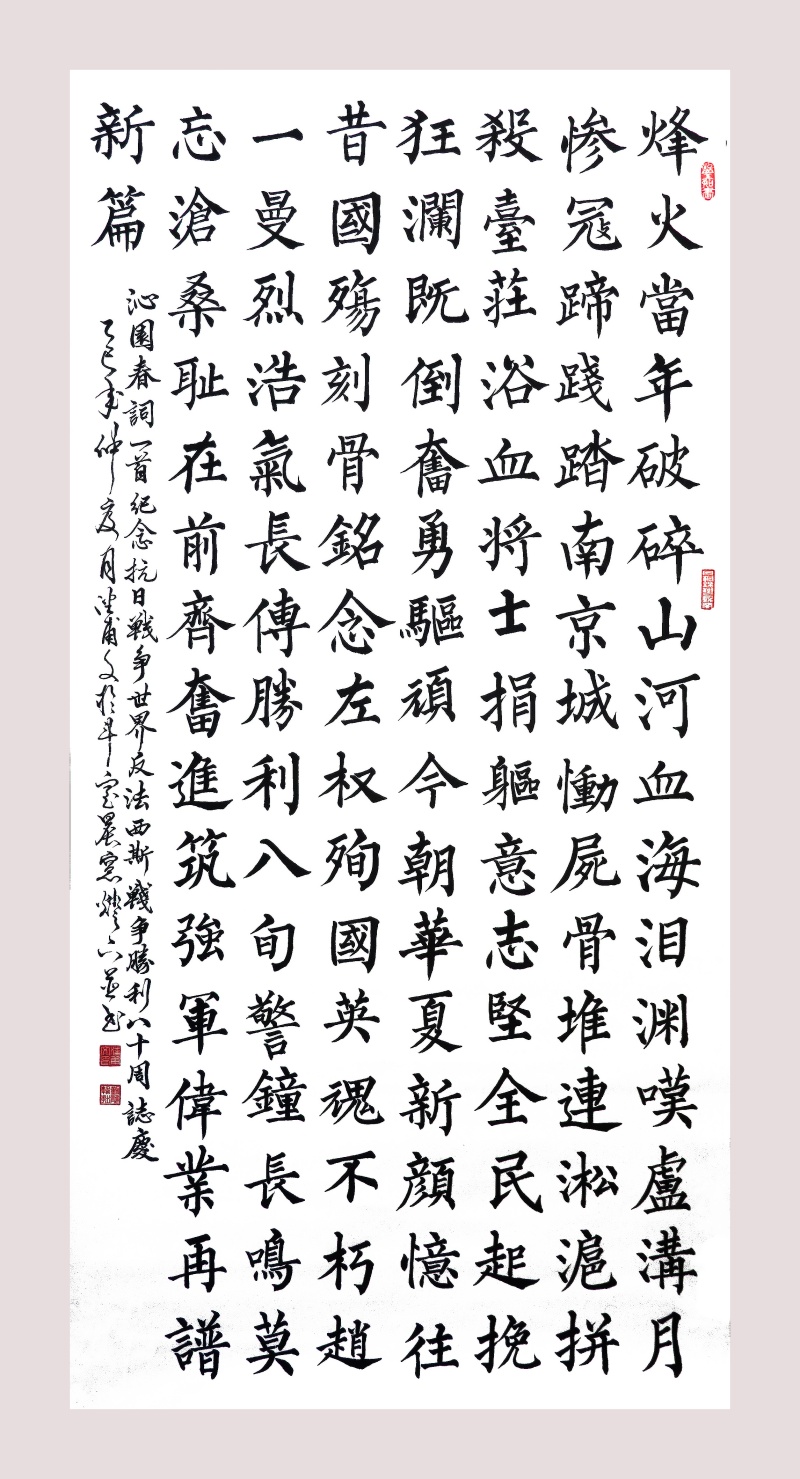 烽火當年破碎山河血海泪渊嘆盧溝月
惨冦蹄踐踏南京城慟屍骨堆連淞滬拼
殺臺莊浴血将士捐軀意志堅全民起挽
狂瀾既倒奮勇驅頑今朝華夏新顔憶往
昔國殤刻骨銘念左权殉國英魂不朽趙
一曼烈浩氣長傳勝利八旬警鐘長鳴莫
忘滄桑耻在前齊奮進筑強軍偉業再譜
新篇
沁園春詞一首纪念抗日戰争世界反法西斯戰争勝利八十周誌慶
乙巳年仲夏月